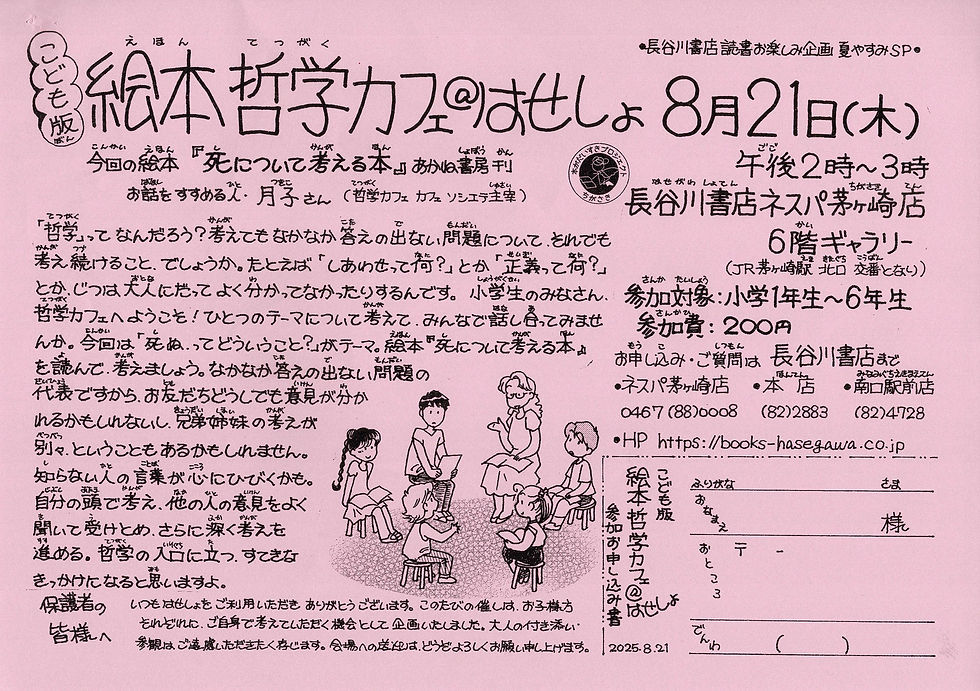 ●長谷川書店 読書お楽しみ企画 夏やすみSP●
こども版
ばん
えほん てつがく
絵本哲学カフェ@はせしょ 8月21日(木)
こんかい えほん し かんが ほん しょぼう かん
今回の絵本『死について考える本』あかね書房刊
はなし ひと つきこ てつがく しゅさい
お話をすすめる人・月子さん(哲学カフェ カフェ ソシエテ主宰)
ごご
午後2時～3時
はせがわ しょてん ちがさき てん
長谷川書店ネスパ茅ヶ崎店
かい
6階ギャラリー
(JR茅ヶ崎駅 北口 交番となり)
さんか たいしょう
参加対象:小学1年生～6年生
さんかひ
参加費:200円
もう こ しつもん
お申し込み・ご質問は 長谷川書店まで
●ネスパ茅ヶ崎店 ●本店 ●南口駅前店
0467(88)0008 (82)2883 (82)4728
●HP https://books-hasegawa.co.jp
「哲学」ってなんだろう?考えてもなかなか答えの出ない問題について、それでも
考え続けること、でしょうか。たとえば「しあわせって何?」とか「正義って何?」
とか、じつは大人にだってよく分かってなかったりするんです。小学生のみなさん、
哲学カフェへようこそ!ひとつのテーマについて考えて、みんなで話し合ってみませ
んか。今回は「死ぬ、ってどういうこと?」がテーマ。絵本『死について考える本』
を読んで、考えましょう。なかなか答えの出ない問題の
代表ですから、お友だちどうしでも意見が分か
れるかもしれないし、兄弟姉妹の考えが
別々、ということもあるかもしれません。
知らない人の言葉が心にひびくかも。
自分の頭で考え、他の人の意見をよく
聞いて受けとめ、さらに深く考えを
進める。哲学の入口に立つ、すてきな
きっかけになると思いますよ。
保護者の
皆様へ
いつもはせしょをご利用いただきありがとうございます。このたびの催しは、お子様方
それぞれに、ご自身で考えていただく機会として企画いたしました。大人の付き添い・
参観はご遠慮いただきたく存じます。会場への送迎は、どうぞよろしくお願い申し上げます。
こども版
絵本哲学カフェ@はせしょ
参加お申し込み書
2025.8.21
ふりがな さま
おなまえ 様
おところ 〒 -
でんわ ( )